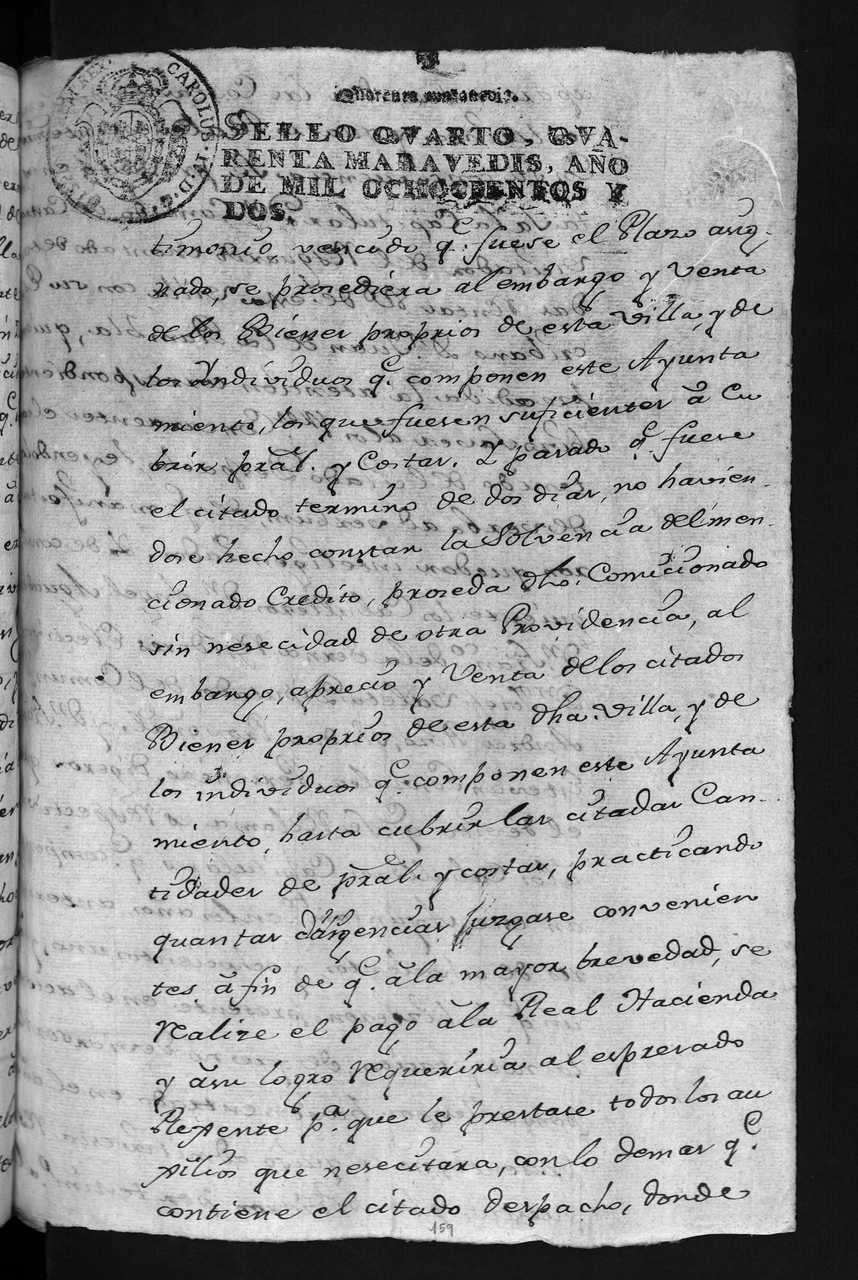 CAROLUS IV D G
Quarenta maravedis.
SELLO QVARTO, QVA-
RENTA MARAVEDIS, AÑO
DE MIL OCHOCIENTOS Y
DOS.
timonio, vencido q.e fuese el Plazo asig-
nado, se prosediera al embargo y venta
de los Bienes proprios de esta villa, y de
los individuos q.e componen este Ayunta
miento, los que fuesen suficientes â Cu
brir pral. y Costas. Y pasado q.e fuese
el citado termino de dos dias, no havien-
dose hecho constar la Solvencia del men-
cionado Credito, proseda dho. Comicionado
sin nesecidad de otra Providencia, al
embargo, aprecio y Venta de los citados
Bienes proprios de esta dha. villa, y de
los individuos q.e componen este Ayunta
miento, hasta cubrir las citadas Can-
tidades de pral. y costas, practicando
quantas diligencias jusgase convenien
tes â fin de q.e â la mayor brevedad, se
Realize el pago â la Real Hacienda
y â su logro Requeriria al espresado
Rexente p.a que le prestase todos los au
xilios que nesecitara, con lo demas q.e
contiene el citado despacho, donde
159